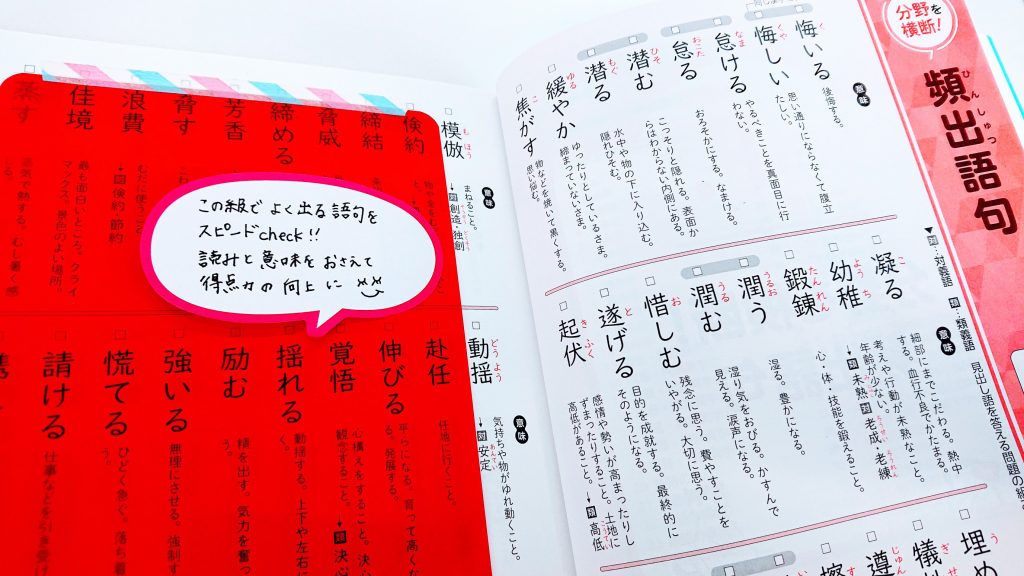 分野を
横断!
頻出語句
ひんしゅつ
対:対義語 類:類義語
見出し語を答える問題の
意味
悔いる
く
後悔する。
悔しい
くや
思い通りにならなくて腹立
たしい。
怠ける
なま
やるべきことを真面目に行
わない。
怠る
おこた
おろそかにする。なまける。
潜む
ひそ
こっそりと隠れる。表面か
らはわからない内側にある。
潜る
もぐ
水中や物の下に入り込む。
隠れひそむ。
緩やか
ゆる
ゆったりとしているさま。
締まっていないさま。
焦がす
こ
物などを焼いて黒くする。
思い悩む。
意味
凝る
こ
細部にまでこだわる。熱中
する。血行不良でかたまる。
幼稚
ようち
考えや行動が未熟なこと。
年齢が少ない。
→類未熟 対老成・老練
鍛錬
たんれん
心・体・技能を鍛えること。
潤う
うるお
湿る。豊かになる。
潤む
うる
湿り気をおびる。かすんで
見える。涙声になる。
惜しむ
お
残念に思う。費やすことを
いやがる。大切に思う。
遂げる
と
目的を成就する。最終的に
そのようになる。
起伏
きふく
感情や勢いが高まったりし
ずまったりすること。土地に
高低があること。→類高低
埋め
う
遵
じゅん
擦
意味
模倣
もほう
まねること。
→対創造・独創
倹約
締結
脅威
締める
芳香
脅す
浪費
むだに使うこと
→対倹約 節約
佳境
最も面白いところ。クライ
マックス。景色のよい場所。
蒸す
湯気で熱する。
意味
動揺
どうよう
気持ちや物がゆれ動くこと。
→対安定
赴任
任地に行くこと。
伸びる
育って高くな
る。発展する。
覚悟
心構えをすること。決心
観念すること。→類決心
揺れる
動揺する。上下や左右に
励む
精を出す。気力を奮っ
強いる
無理にさせる。強制す
慌てる
ひどく急ぐ。落ち着
請ける
仕事などを引き受
この級でよく出る語句を
スピードcheck!!
読みと意味をおさえて
得点力の向上に